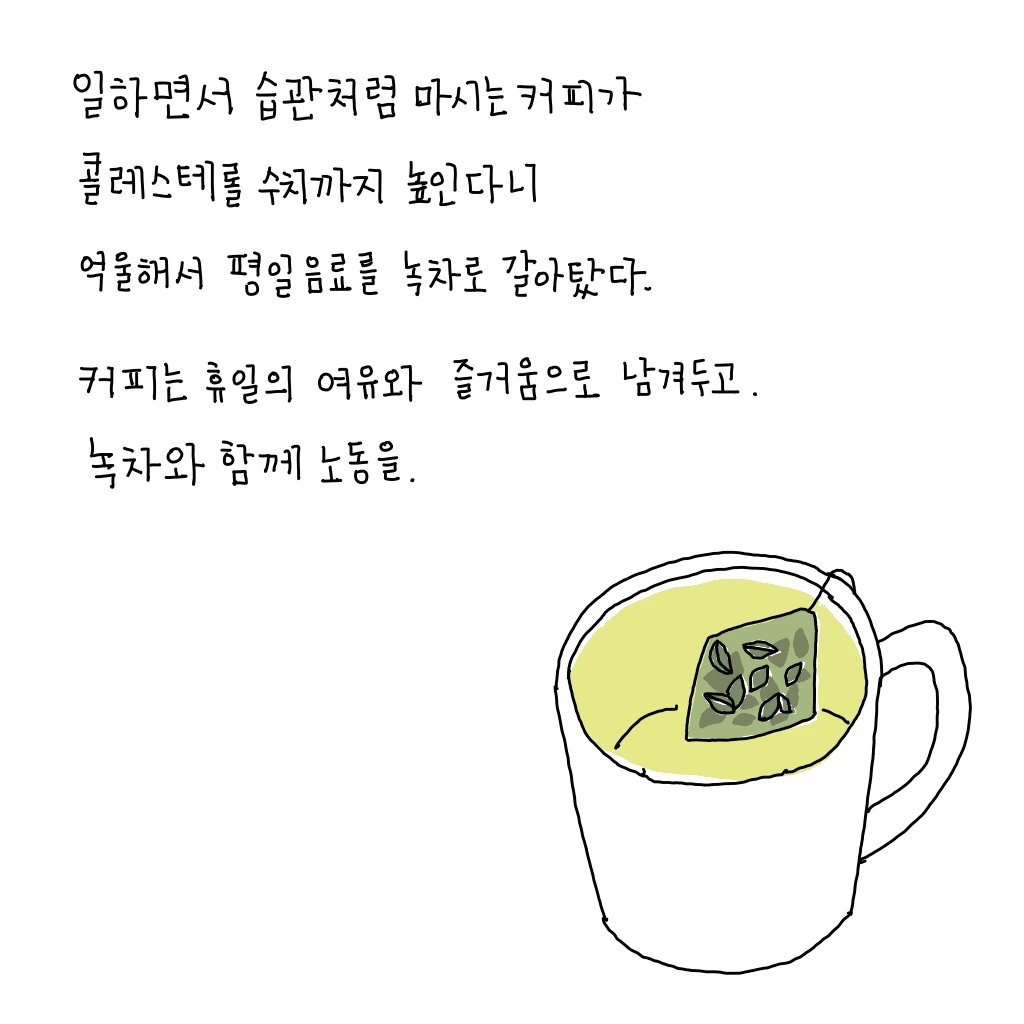 일하면서 습관처럼 마시는 커피가
콜레스테롤 수치까지 높인다니
억울해서 평일음료를 녹차로 갈아탔다.
커피는 휴일의 여유와 즐거움으로 남겨두고.
녹차와 함께 노동을.